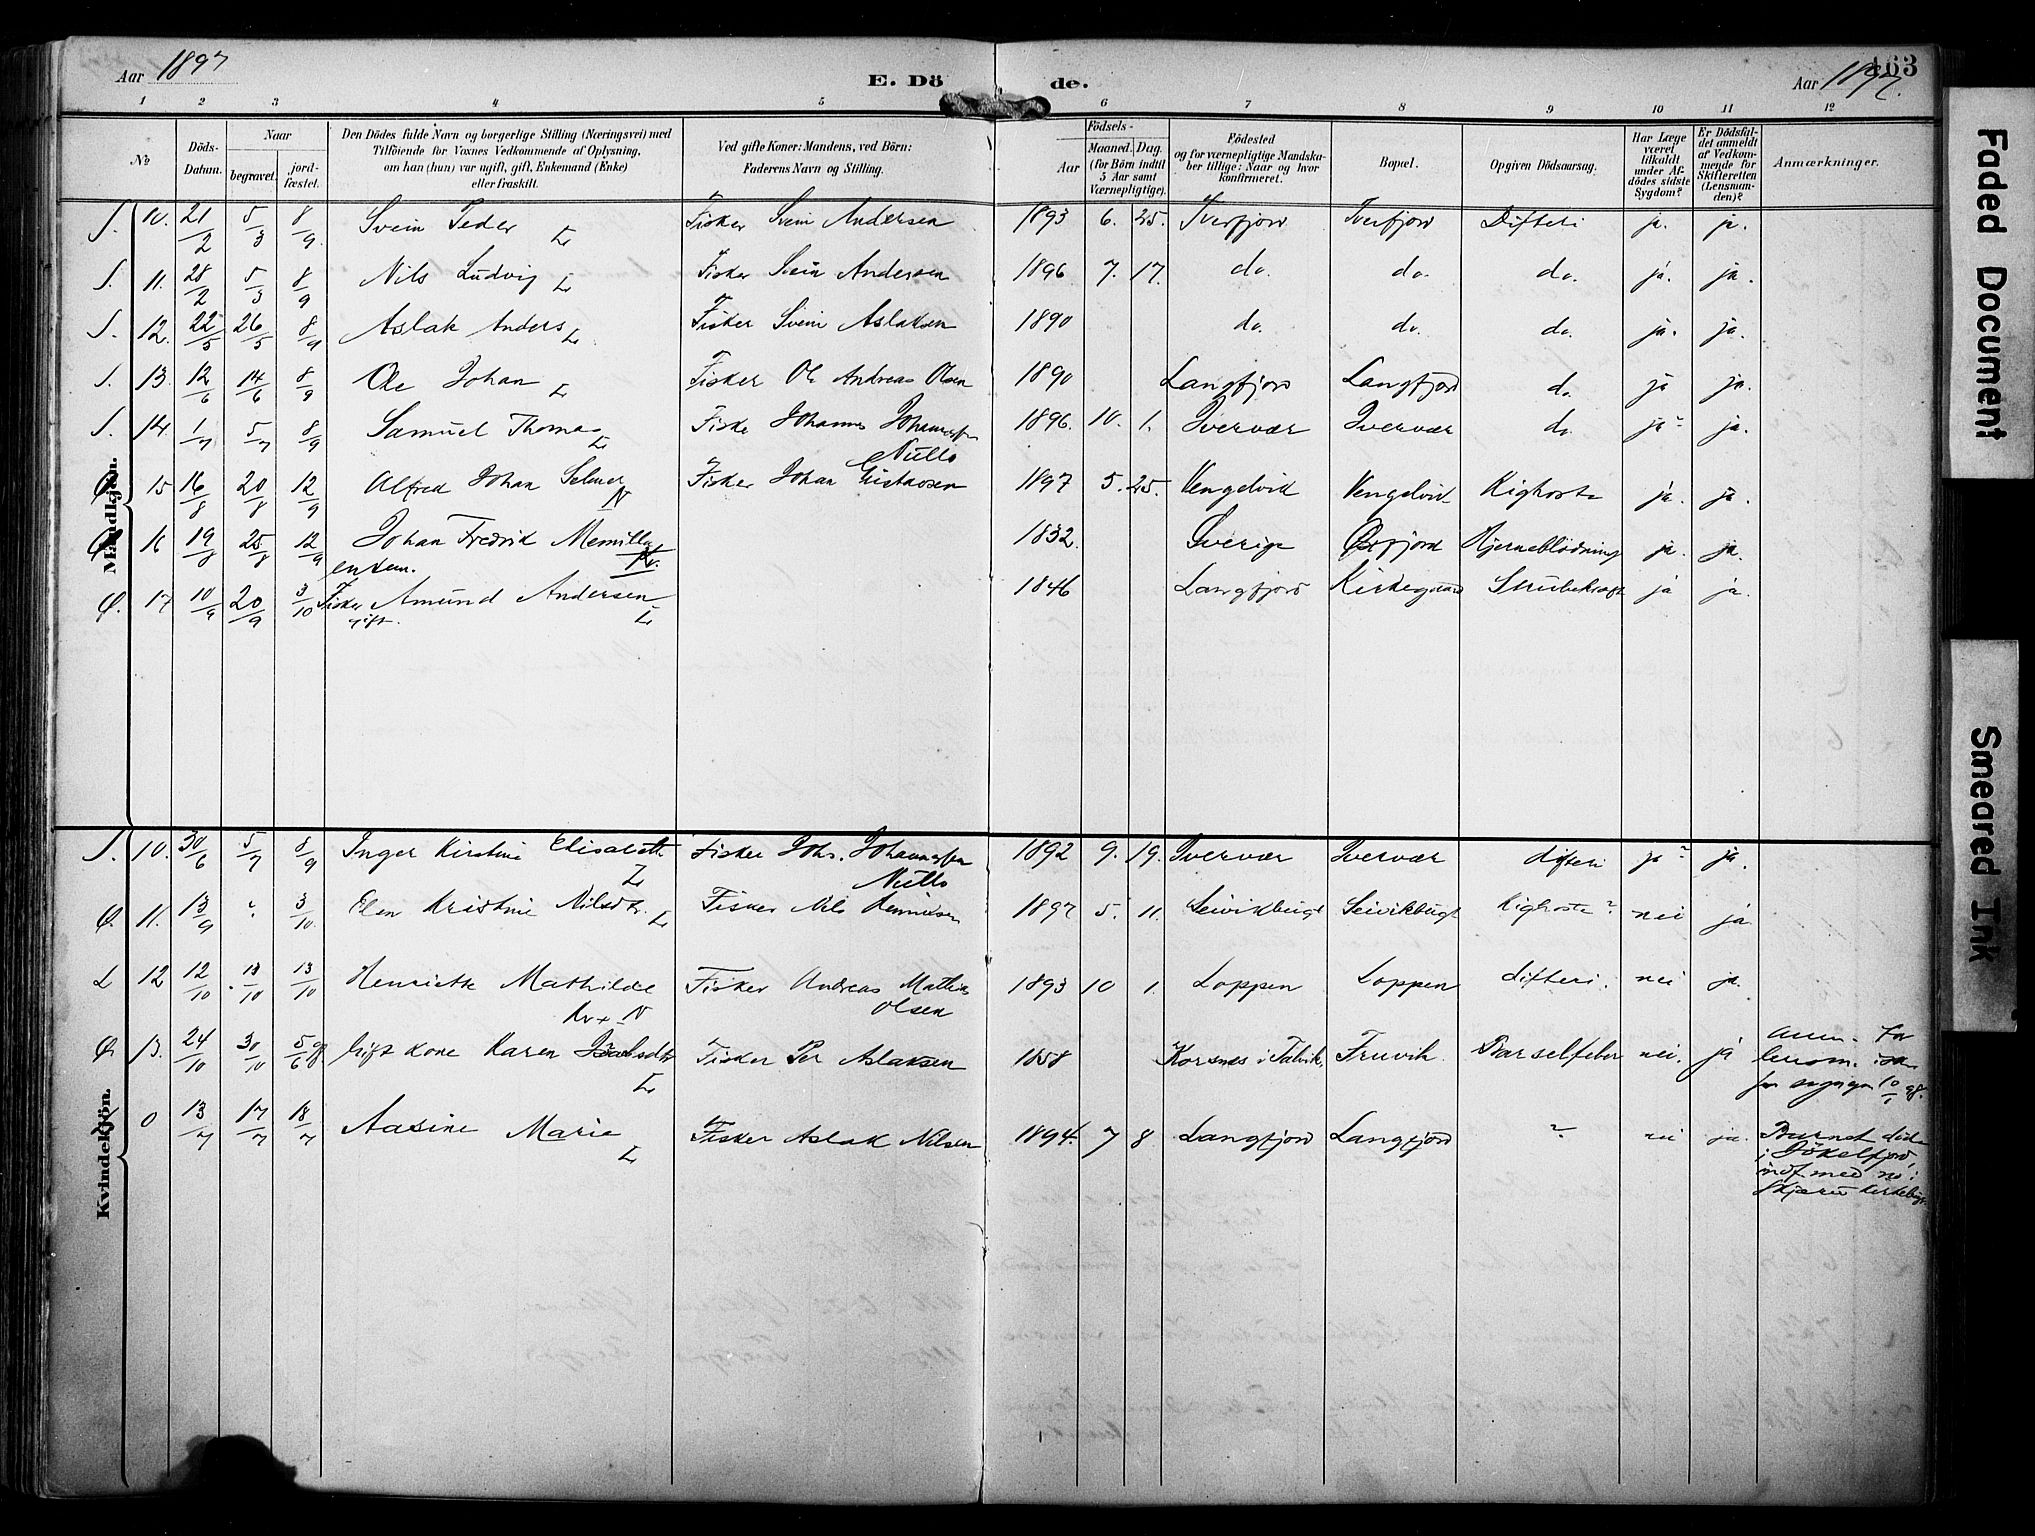 Aar 1897 E. Døde. Aar 1897. 163
1 2 3 4 5 6 7 8 9 10 11 12
No Døds-Datum. Naar begravet. jordfæstet. Den Dødes fulde Navn og borgerlige Stilling (Næringsvei) med Tilføiende for Voxnes Vedkommende af Oplysning, om han (hun) var ugift, gift, Enkemand (Enke) eller fraskilt. Ved gifte Koner: Mandens, ved Børn: Faderens Navn og Stilling. Fødsels- Aar Maaned. Dag. (for Børn indtil 5 Aar samt Værnepligtige). Fødested og for værnepligtige Mandskaber tillige: Naar og hvor konfirmeret. Bopæl. Opgiven Dødsaarsag. Har Læge været tilkaldt under Afdødes sidste Sygdom? Er Dødsfaldet anmeldt af Vedkommende for Skifteretten (Lensmanden)? Anmærkninger.
Mandkjøn.
S. 10. 21/2 5/3 8/9. Svein Peder L. Fisker Svein Andersen 1893 6. 25. Tverfjord Tverfjord Difteri ja. ja.
S. 11. 28/2 5/3 8/9 Nils Ludvig L. Fisker Svein Andersen 1896 7. 17. do. do. do. ja. ja.
S. 12. 22/5 26/5 8/9 Aslak Anders L. Fisker Svein Aslaksen 1890 do. do. do. ja. ja.
S. 13. 12/6 14/6 8/9 Ole Johan L. Fisker Ole Andreas Olsen 1890 Langfjord Langfjord do. ja ja.
S. 14. 1/7 5/7 8/9 Samuel Thomas L. Fisker Johannes Johannesen 1896. 10. 1. Ivervær Ivervær do. ja? ja.
Nullo
15 16/8 20/8 12/9 Alfred Johan Selmer N Fisker Johan Gustavsen 1897 5. 25. Vengelvik Vengelvik Kighoste ja. ja.
16 19/8 25/8 12/9 Johan Fredrik 1832. Sverige Øxfjord Hjerneblødning ja. ja.
enkem.
Ø. 17 10/9 20/9 3/10 Fisker Amund Andersen L. 1846 Langfjord Kirkegaard Strubekræft ja ja.
gift.
Kvindekjøn.
S. 10. 30/6 5/7 8/9 Inger Kirstine Elisabeth L. Fisker Johs. Johannesen 1892 9. 19. Ivervær Ivervær difteri ja? ja.
Nullo
Ø. 11. 13/9 ? 3/10. Elen Kristine Nilsdtr. L. Fisker Nils Henriksen 1897 5. 11. Seivikbugt Seivikbugt Kighoste? nei ja
L 12 12/10 13/10 13/10 Henriette Mathilde Fisker Andreas Mathias 1893 10 1. Loppen Loppen difteri. nei ja.
Kv + N Olsen
Ø 13. 24/10 30/10 5/6 98 Gift kone Karen L. Fisker Per Aslaksen 1858 Korsnes i Talvik. Fruvik. Barselfeber nei. ja
0 13/7 17/7 18/7 Aasine Marie L. Fisker Aslak Nilsen 1894. 7 8 Langfjord Langfjord ? nei ja. Barnet døde
i Jøkelfjord,
indf. med no i
Skjervø kirkebog.
Faded Document
Smeared Ink